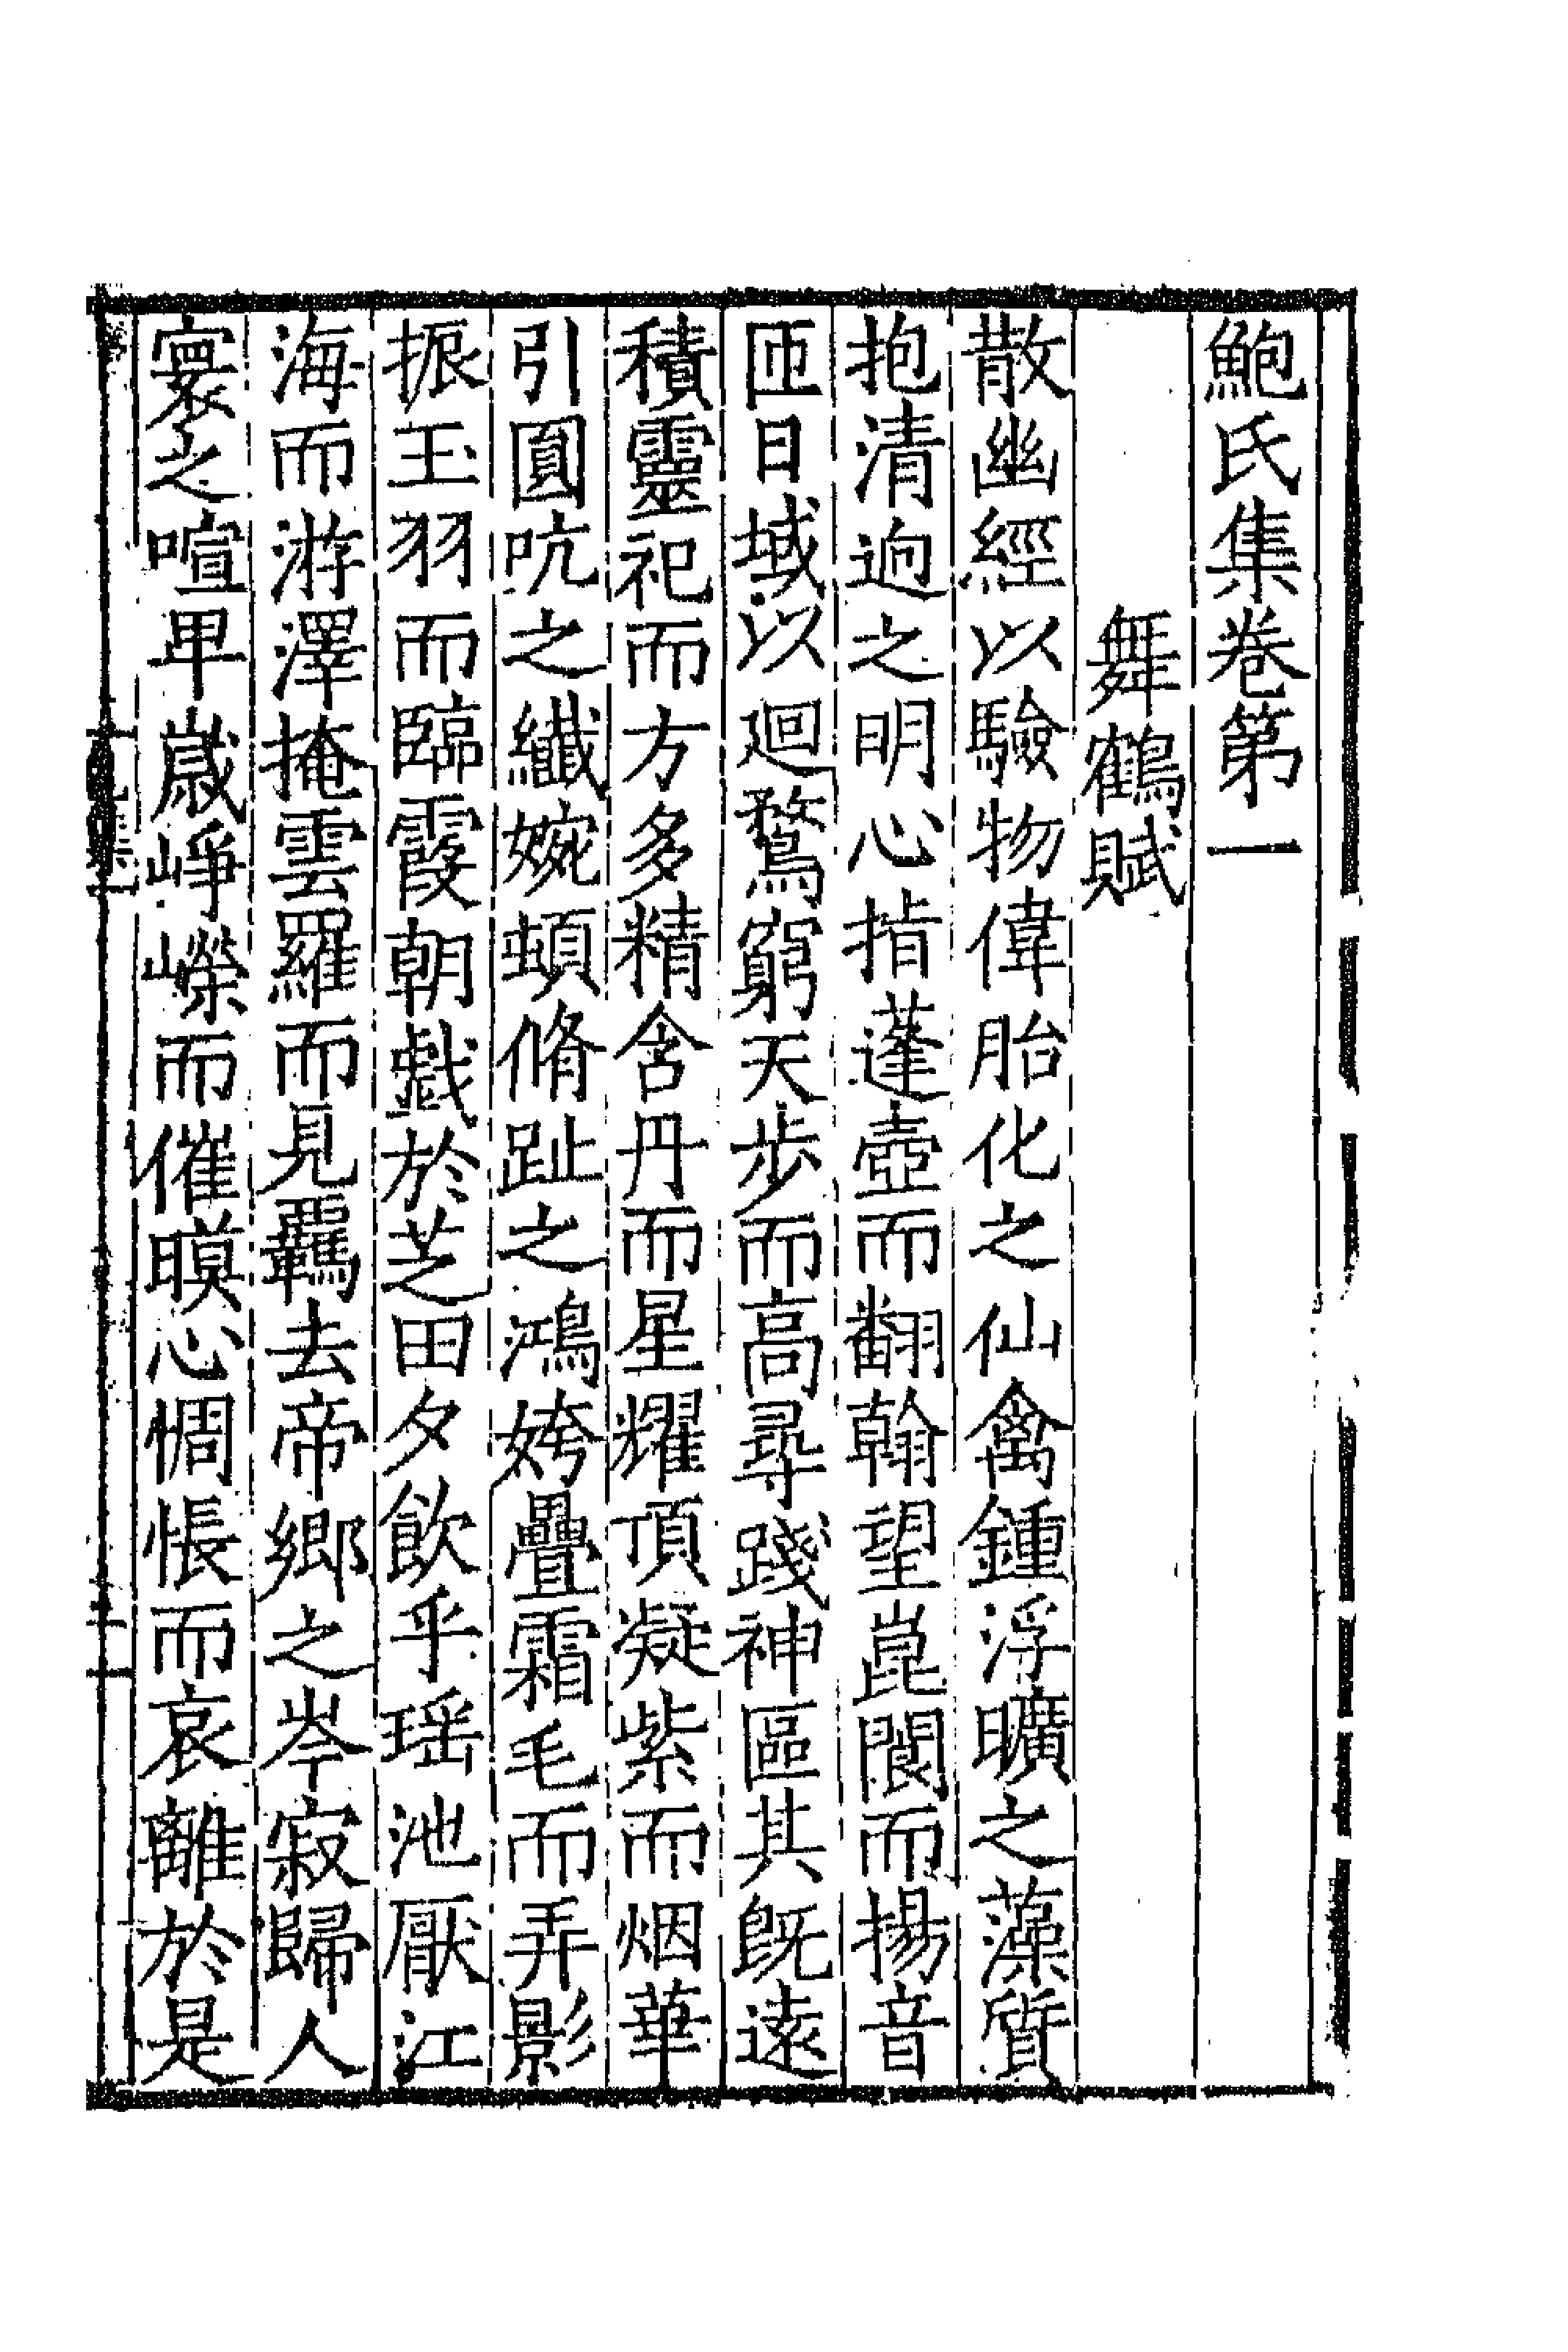 鮑氏集卷第一
舞鶴賦
散幽經以驗物偉胎化之仙禽鍾浮曠之藻質
抱清逈之明心指蓬壺而翻翰望崑閬而揚音
匝日域以迴鶩窮天步而高尋踐神區其旣遠
積靈祀而方多精含丹而星耀頂凝紫而烟華
引圓吭之纖婉頓脩趾之鴻姱疊霜毛而弄影
振玉羽而臨霞朝戲於芝田夕飲乎瑶池厭江
海而游澤掩雲羅而見羈去帝鄉之岑寂歸人
寰之喧卑歲崢嶸而催暮心惆悵而哀離於是